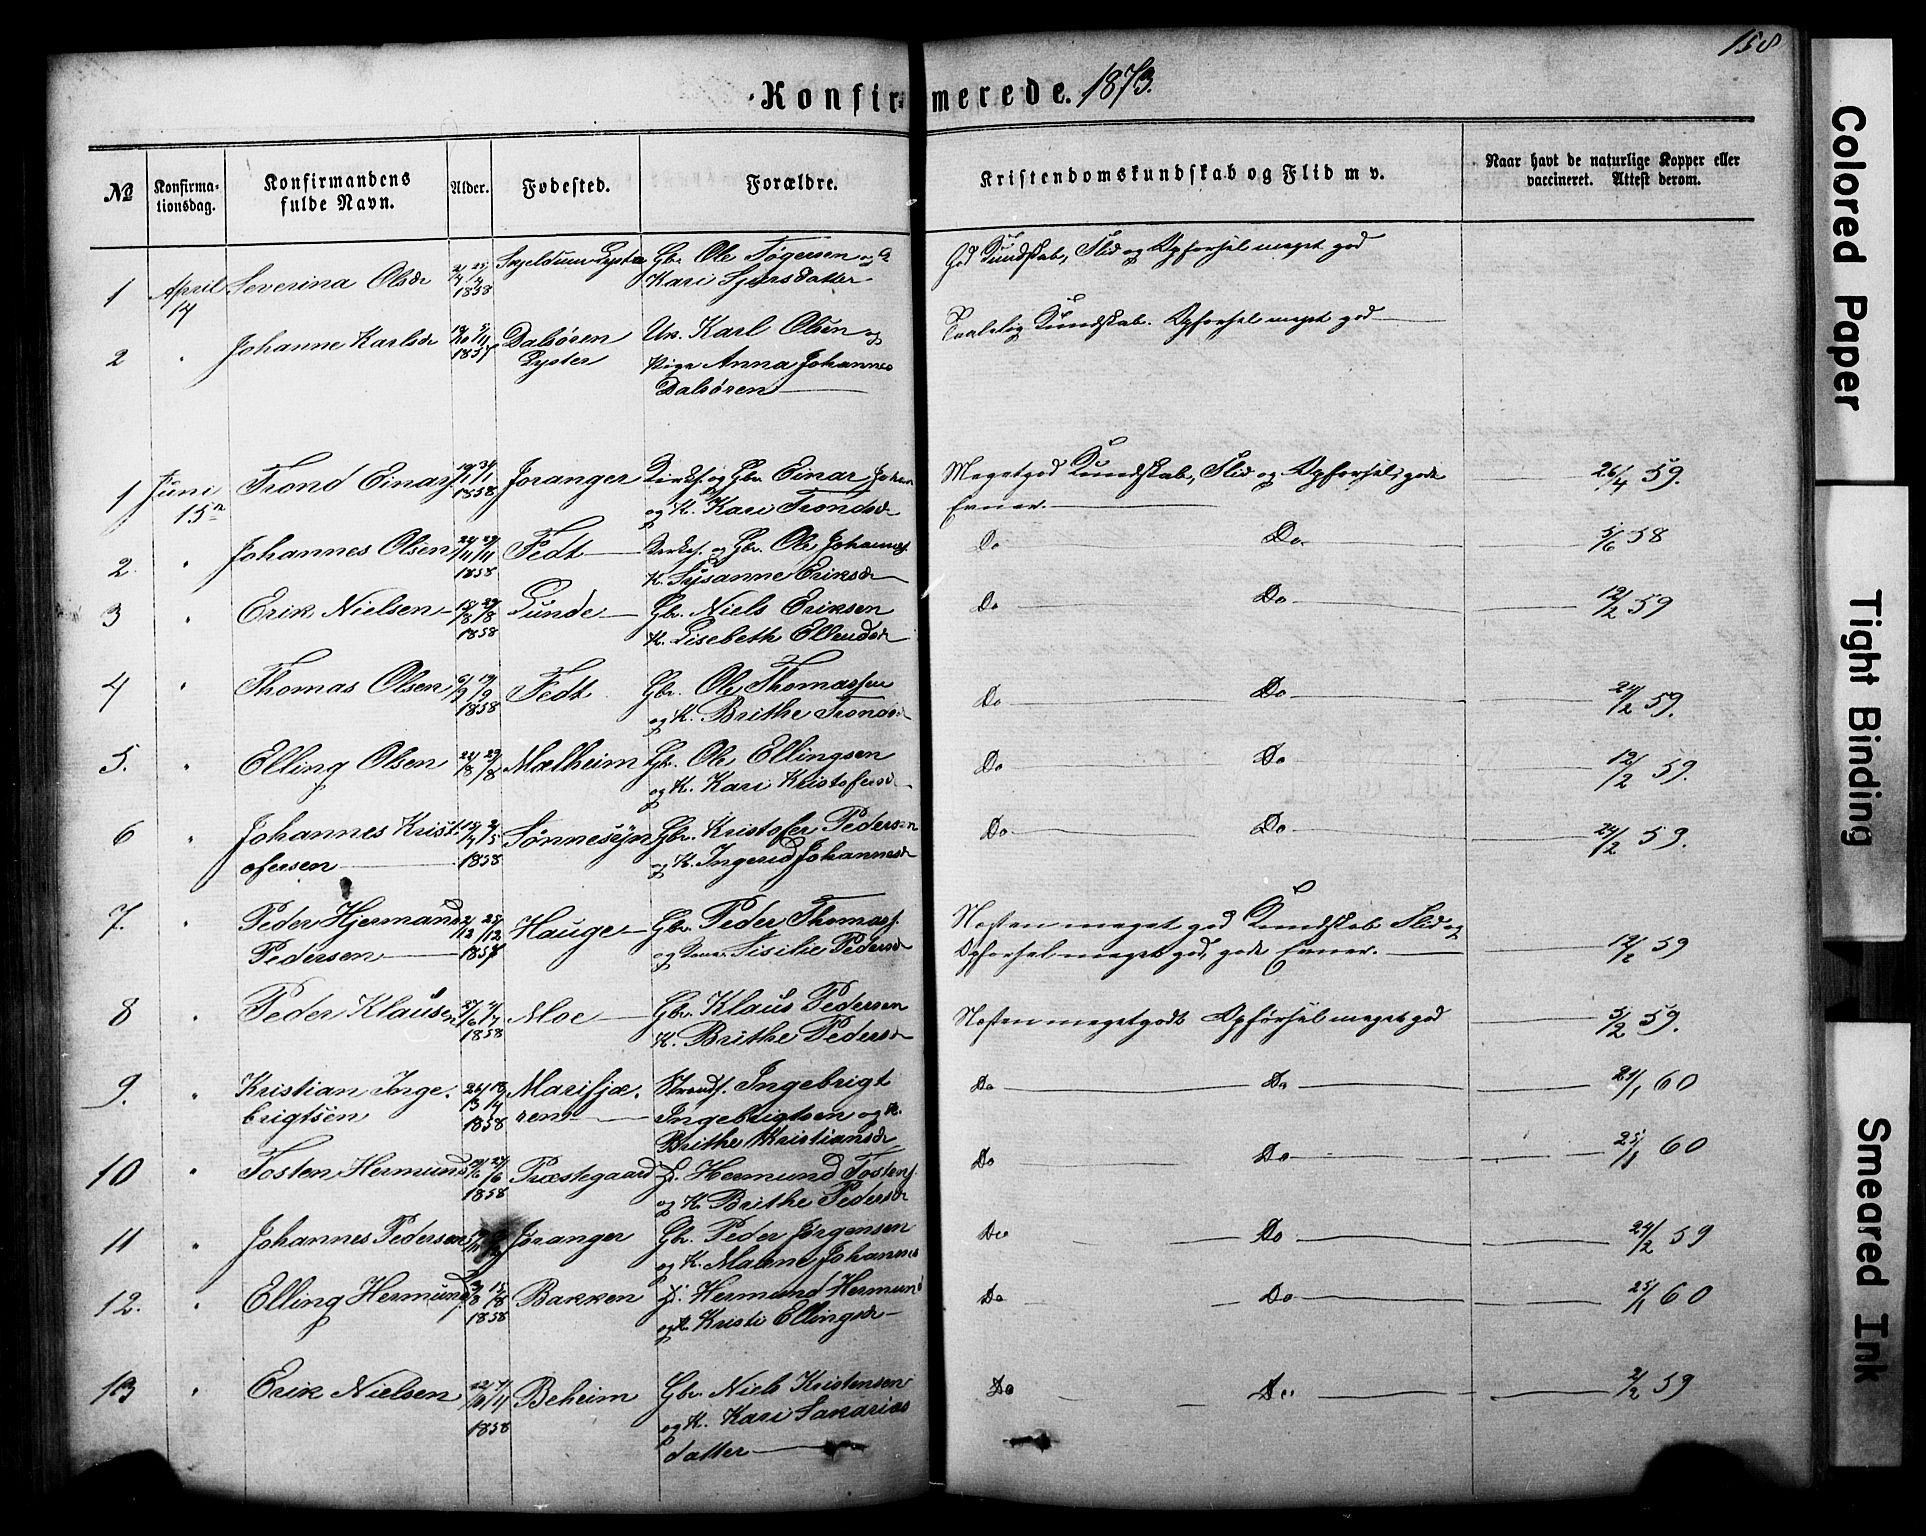 158
Konfirmerede. 1873.
№ Konfirmationsdag. Konfirmandens fulde Navn. Alder. Fødested. Forældre. Kristendomskundskab og Flid m v. Naar havt de naturlige Kopper eller vaccineret. Attest derom.
1 April 14 Severina Olsdr 1858 Gbr. Ole og Kari Sjursdatter God Kundskab, Flid og Opførsel meget god
2 " Johanne Karlsdr 1857 Dalsøren Lyster Uk. Karl Olsen og Pige Anna Johannes Dalsøren Taalelig Kundskab. Opførsel meget god
1 Juni 15de Trond Einars 1858 Joranger Kirkes. og Gbr. Einar Johan og K. Kari Trondsdr Megetgod Kundskab, Flid og Opførsel, gode Evner. 26/4 59.
2. " Johannes Olsen 24/11 27/11 1858 Fedt Kirkes. og Gbr. Ole Johannes. K. Susanne Eriksdr Do Do 5/6 58
3 " Erik Nielsen 18/8 29/8 1858 Lunde Gbr. Niels Eriksen K. Lisebeth Ellendsdr Do Do 12/2 59
4 " Thomas Olsen 9/9 19/9 1858 Fedt Gbr. Ole Thomassen og K. Brithe Tronds Do Do 24/2 59.
5. " Elling Olsen 22/8 29/8 Mælheim Gbr. Ole Ellingsen og K. Kari Kristofersdr Do Do 12/2 59.
6 " Johannes Kristofersen 1858 Sønnesyn Gbr. Kristofer Pedersen og K. Ingerid Johannesdr Do Do 24/2 59.
7. " Peder Hjermand Pedersen 2/12 25/12 1857 Hauge Gbr. Peder Thomass. og Kone Sisilie Pedersdr Næsten meget god Kundskab Flid og Opførsel meget god, gode Evner. 12/2 59
8 " Peder Klausen 27/6 4/7 1858 Moe Gbr. Klaus Pedersen K. Brithe Pedersdr Næsten megetgodt Opførsel meget god 5/2 59.
9. " Kristian Ingebrigtsen 1858 Marifjæren Strands. Ingebrigt Ingebrigtsen og K. Brithe Kristiansdr Do Do 21/1 60
10 " Tosten Hermunds 1858 Præstegaard H. Hermund Tostens og K. Brithe Pedersdr Do Do 25/1 60
11 " Johannes Pedersen Joranger Gbr. Peder Jørgensen og K. Malene Johannes Do Do 24/2 59
12. " Elling Hermunds. 3/8 15/8 1858 Bakken H. Hermund Hermund og K. Kristi Ellingsdr Do Do 25/1 60
13 " Erik Nielsen 1858 Beheim Gbr. Niels Kristensen og K. Kari Sakariasdatter Do Do 2/2 59
Colored Paper
Tight Binding
Smeared Ink